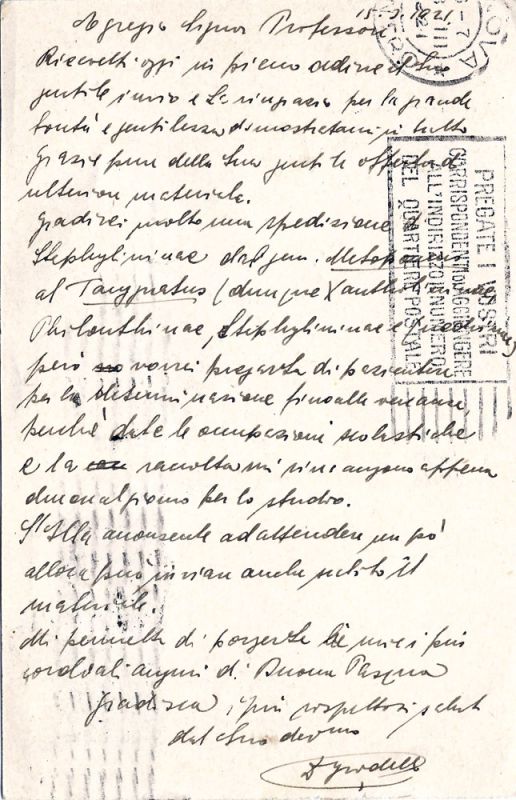 Egregio Signor Professore,
Ricevetti oggi in pieno ordine il Suo
gentile invio e La ringrazio per la grande
bontà e gentilezza dimostratami in tutto
Grazie pure della Sua gentile offerta di
ulteriore materiale.
Gradirei molto una spedizione di
Staphylininae dal gen. Metoponcus
al Tanygnatus (dunque Xantholininae
Philonthinae Staphylininae e
però vorrei pregarla di pazientare
per la determinazione fino alle vacanze,
perchè date le occupazioni scolastiche
e la raccolta mi rimangono appena
due ore al giorno per lo studio.
S'Ella acconsente ad attendere un pò
allora può inviare anche subito il
materiale.
Mi permetta di porgerLe i miei più
cordiali auguri di Buona Pasqua
Gradisca i più rispettosi saluti
dal Suo devmo
PREGATE I VOSTRI
CORRISPONDENTI DI AGGIUNGERE
ALL'INDIRIZZO IL NUMERO
DEL QUARTIERE POSTALE